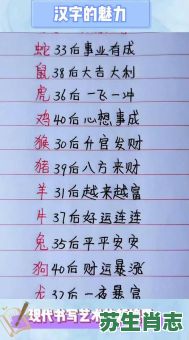 汉字的魅力
蛇 33后事业有成
鼠 38后大吉大利
虎 36后一飞一冲
鸡 40后心想事成
猴 30后升官发财
猪 39后八方来财
羊 31后越来越富
牛 37后好运连连
兔 35后平平安安
狗 40后财运暴涨
龙 32后一夜暴富
现代书写艺术
苏生肖志